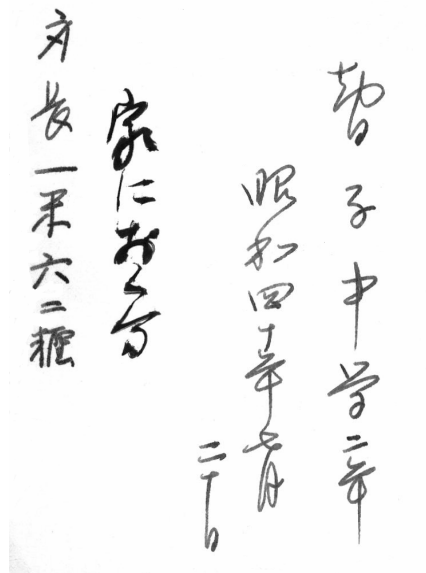 智子中学二年
昭和四十年七月
二十日
家におく分
身長一米六二糎